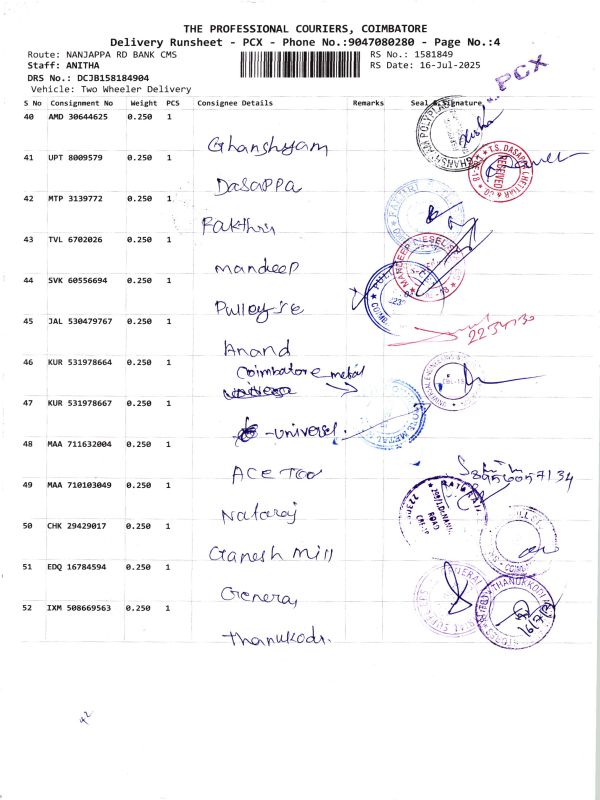 THE PROFESSIONAL COURIERS, COIMBATORE
Delivery Runsheet - PCX - Phone No.:9047080280 - Page No.:4
Route: NANJAPPA RD BANK CMS
RS No.: 1581849
Staff: ANITHA
RS Date: 16-Jul-2025
DRS No.: DCJB158184904
Vehicle: Two Wheeler Delivery
PCX
S No Consignment No Weight PCS Consignee Details Remarks Seal & Signature
40 AMD 30644625 0.250 1
Ghanshyam
41 UPT 8009579 0.250 1
T.S. DASAPPA CHETTIAR
RECEIVED
Dasappa
42 MTP 3139772 0.250 1
Fakthri
43 TVL 6702026 0.250 1
MANDEEP DIESEL
mandeep
44 SVK 60556694 0.250 1
Pulley-re
45 JAL 530479767 0.250 1
Anand
46 KUR 531978664 0.250 1
Coimbatore metal
47 KUR 531978667 0.250 1
-universel.
48 MAA 711632004 0.250 1
ACE Too
8956057134
49 MAA 710103049 0.250 1
Nataraj
ROAD
50 CHK 29429017 0.250 1
Ganesh Mill
51 EDQ 16784594 0.250 1
General
52 IXM 508669563 0.250 1
THANUKKODI
Thanukodi.